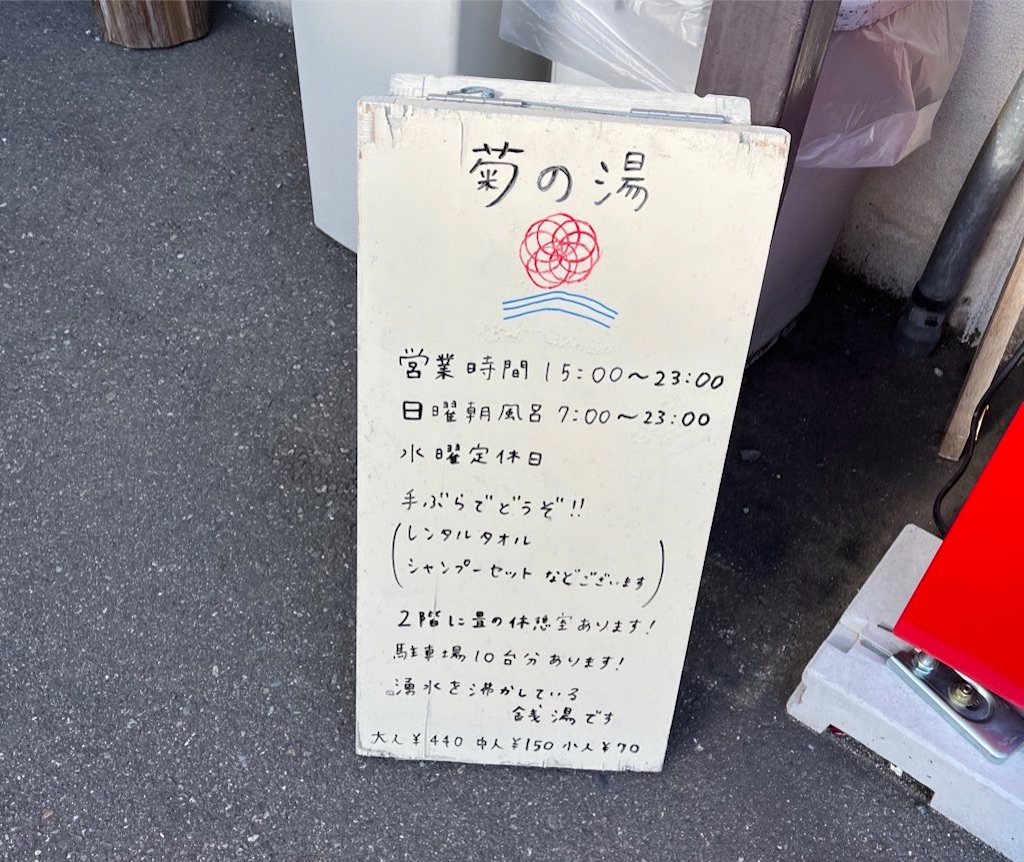 菊の湯
営業時間 15:00～23:00
日曜朝風呂 7:00～23:00
水曜定休日
手ぶらでどうぞ!!
(レンタルタオル
シャンプーセット などございます)
2階に畳の休憩室あります!
駐車場10台分あります!
湧水を沸かしている
銭湯です
大人¥440 中人¥150 小人¥70